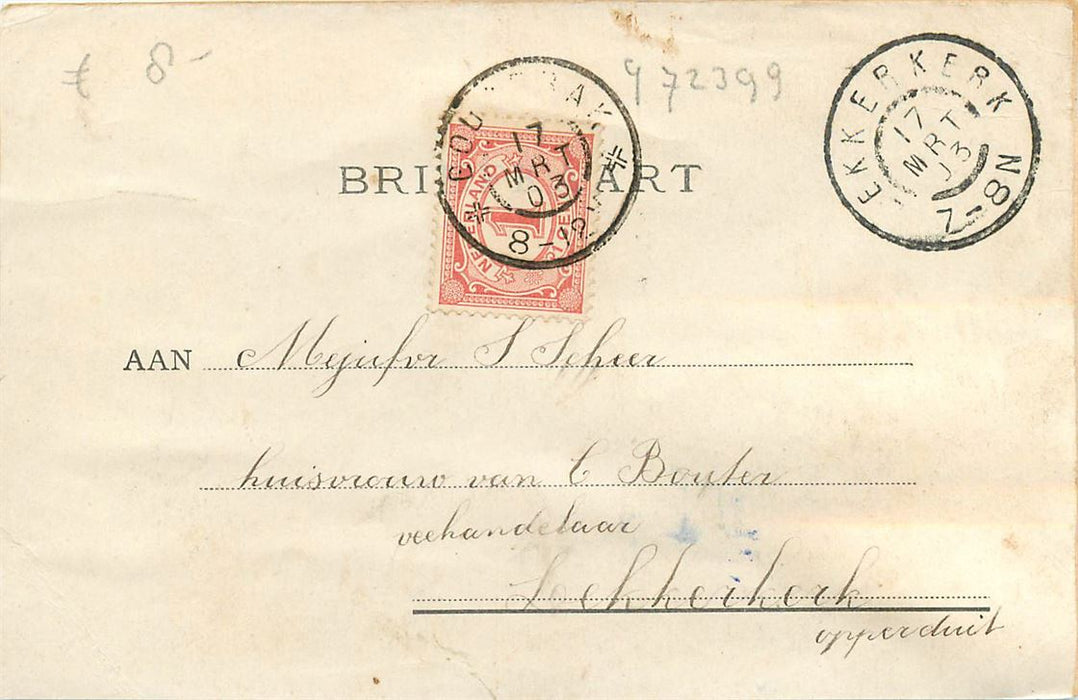 8-
972399
GOU RAK
17
MRT
03
8-12
EKKERKERK
17
MRT
03
7-8N
BRI ART
NEDERLAND
1
AAN Mejufvr S Scheer
huisvrouw van C Bouter
veehandelaar
Lekkerkerk
opperduit